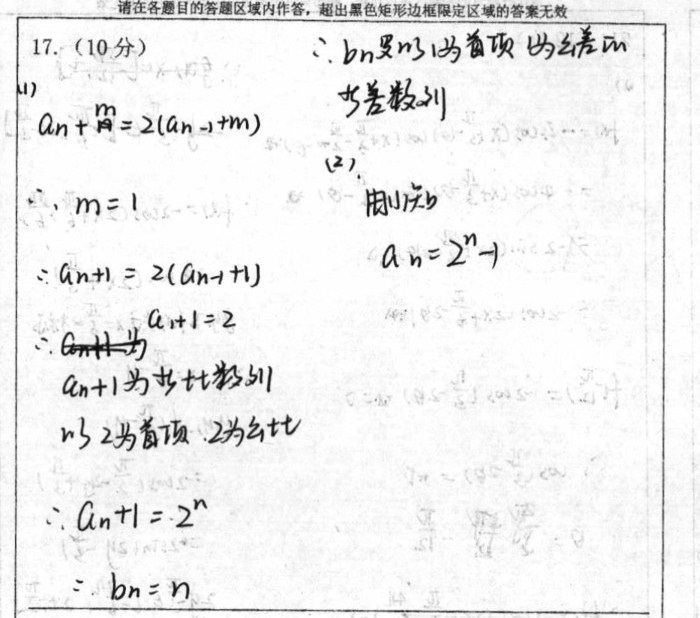 请在各题目的答题区域内作答，超出黑色矩形边框限定区域的答案无效
17.（10分）
(1)
an+m=2(an-1+m)
∴ m=1
∴ an+1 = 2(an-1+1)
a1+1=2
∴
an+1为等比数列
以2为首项.2为公比
∴ an+1=2ⁿ
∴ bn=n
∴ bn是以1为首项 1为公差的
等差数列
(2).
由(1)知
an=2ⁿ-1